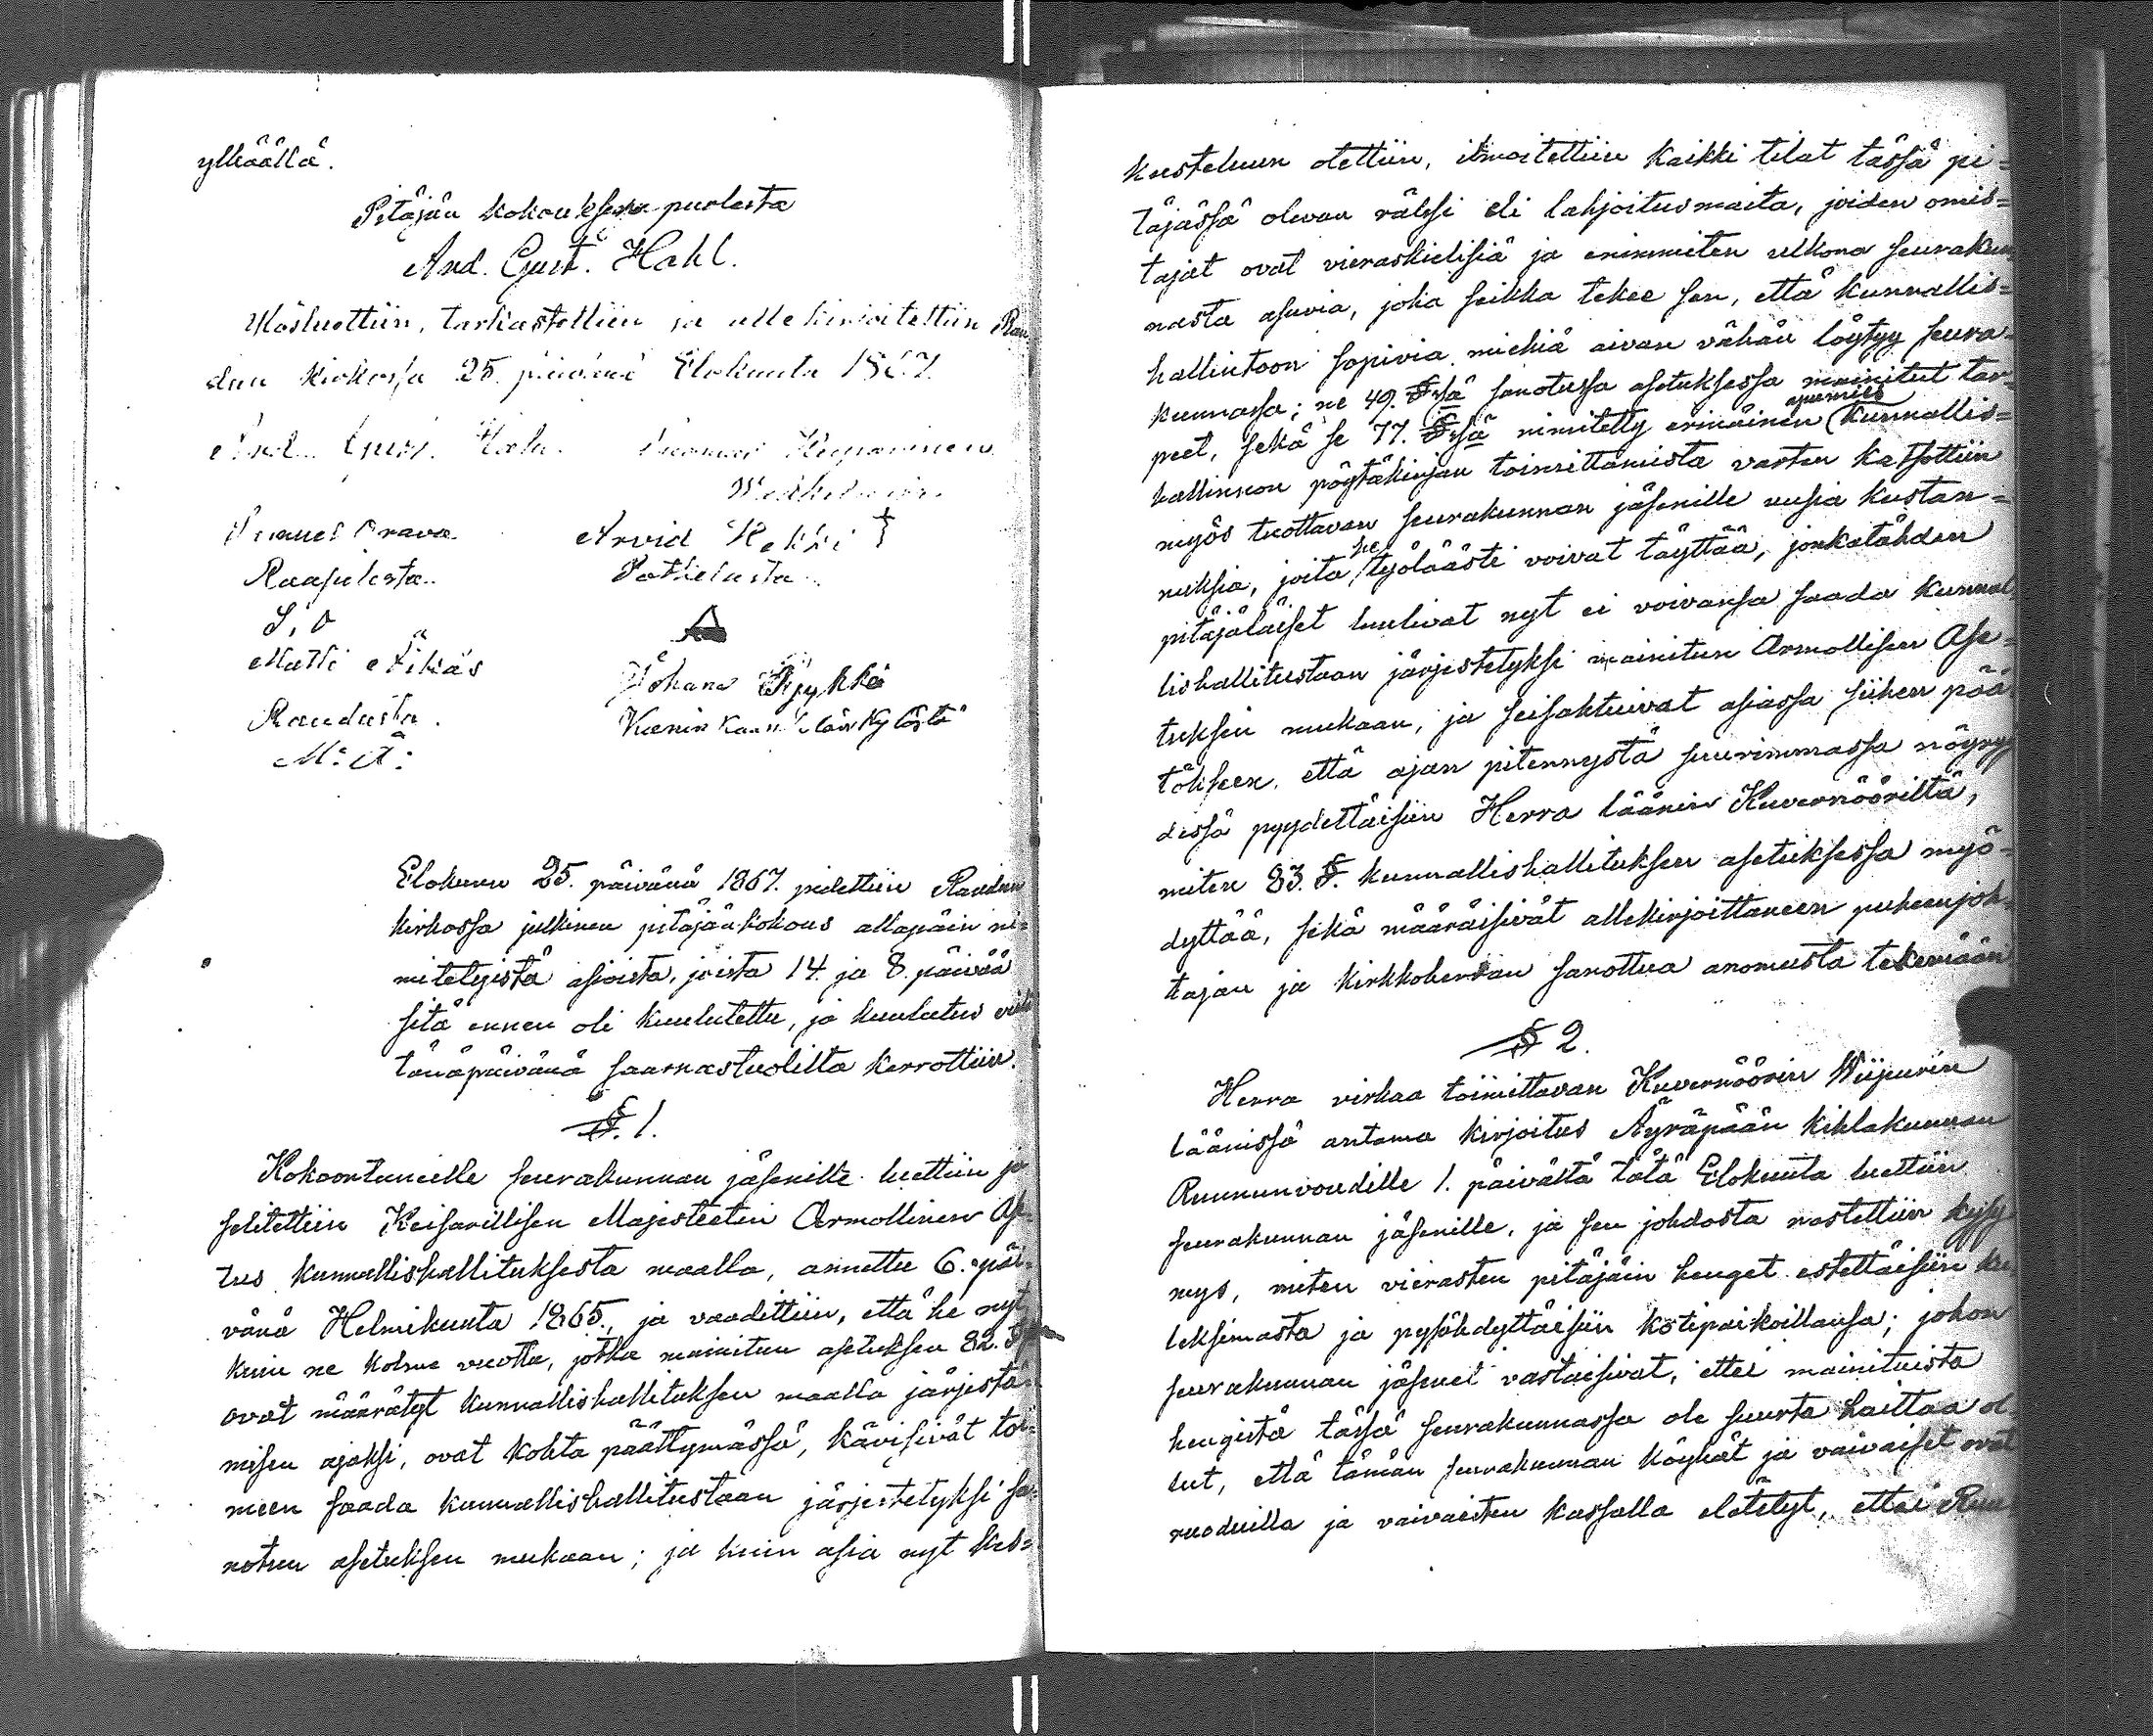 ylhäällä.
Pitäjän kokouksen puolesta
And. Gust. Hahl.
Ulosluettiin, tarkastettiin ja allekirjoitettiin Rau
dun kirkossa 25. päivänä Elokuuta 1867.
And. Gust. Hahl. Tuomas
Orava Arvid Kekki †
Raasulista. Potkelasta.
S. O
Matti Äikäs Johana Kjykkä
Raudusta. Kuninkaan kylästä
M: Ä:
Elokuun 25. päivänä 1867. pidettiin Raudun
kirkossa julkinen pitäjänkokous allapäin ni=
mitetyistä asioista, joista 14. ja 8. päivää
sitä ennen oli kuulutettu, ja kuulutus vielä
tänäpäivänä saarnastuolilta kerrottiin.
§. 1.
Kokoontuneille seurakunnan jäsenille luettiin ja
selitettiin Keisarillisen Majesteetin Armollinen Ase
tus kunnallishallituksesta maalla, annettu 6. päi=
vänä Helmikuuta 1865., ja vaadittiin, että he nyt
kuin ne kolme vuotta, jotka mainitun asetuksen 82. §
ovat määrätyt kunnallishallituksen maalla järjestä=
misen ajaksi, ovat kohta päättymässä, kävisivät toi=
meen saada kunnallishallitustaan järjestetyksi sa=
notun asetuksen mukaan; ja kuin asia nyt kes=
kusteluun otettiin, ilmoitettiin kaikki tilat tässä pi=
täjässä olevan rälssi eli lahjoitusmaita, joiden omis=
tajat ovat vieraskielisiä ja enimmiten ulkona seurakun
nasta asuvia, joka seikka tekee sen, että kunnallis=
hallintoon sopivia miehiä aivan vähän löytyy seura=
kunnassa; ne 49. §:ssä sanotussa asetuksessa mainitut tar=
peet, sekä se 77. §:ssä nimitetty erinäinen apumies kunnallis=
hallinnon pöytäkirjan toimittamista varten katsottiin
myös tuottavan seurakunnan jäsenille uusia kustan=
nuksia, joita he työläästi voivat täyttää, jonkatähden
pitäjäläiset luulivat nyt ei voivansa saada kunnal
lishallitustaan järjestetyksi mainitun Armollisen Ase=
tuksen mukaan, ja seisahtuivat asiassa siihen pää
tökseen, että ajan pitennystä suurimmassa nöyryy
dessä pyydettäisiin Herra läänin Kuvernööriltä,
miten 83. §. kunnallishallituksen asetuksessa myö=
dyttää, sekä määräisivät allekirjoittaneen puheenjoh=
tajan ja kirkkoherran sanottua anomusta tekemään
§ 2.
Herra virkaa toimittavan Kuvernöörin Wiipurin
läänissä antama kirjoitus Äyräpään kihlakunnan
Ruununvoudille 1. päivältä tätä Elokuuta luettiin
seurakunnan jäsenille, ja sen johdosta nostettiin kysy
mys, miten vierasten pitäjäin henget estettäisiin ku
leksimasta ja pysähdyttäisiin kotipaikoillansa; johon
seurakunnan jäsenet vastaisivat, ettei mainituista
hengistä tässä seurakunnassa ole suurta haittaa ol
lut, että tämän seurakunnan köyhät ja vaivaiset ovat
ruoduilla ja vaivaisten kassalla elätetyt, ettei